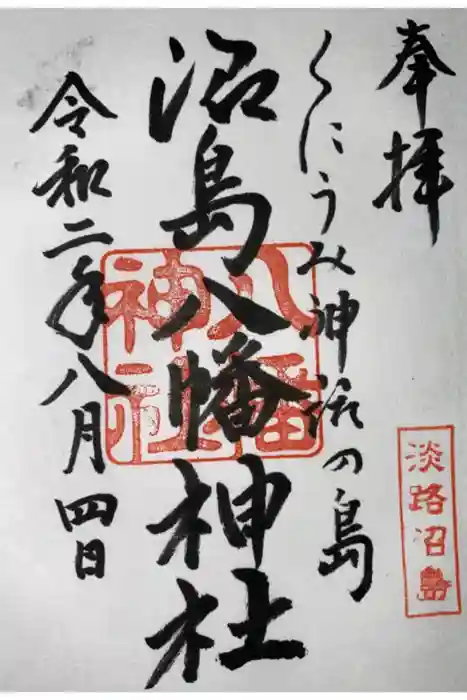 奉拝
くにうみ神話の島
沼島八幡神社
令和二年八月四日
八幡神社
淡路沼島